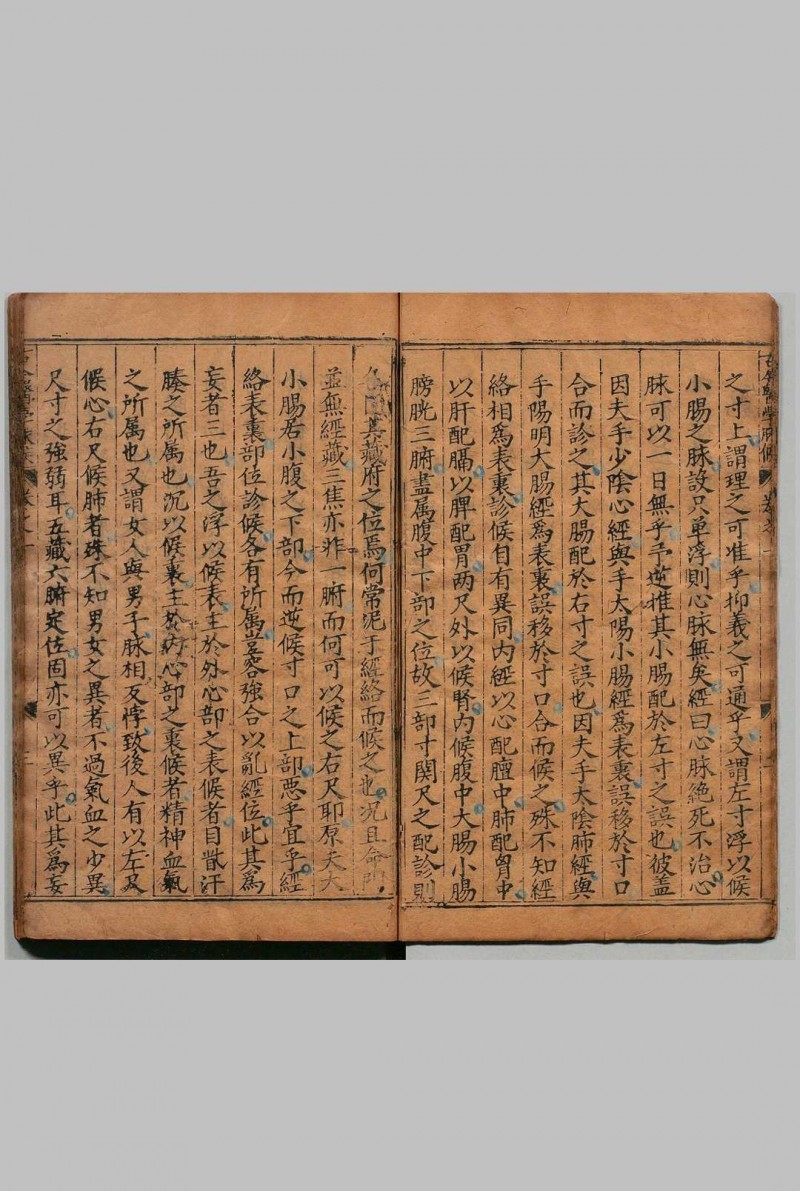 之寸上謂理之可准乎抑義之可通乎又謂左寸浮以候
小腸之脉設只单浮則心脉無矣經曰心脉絶死不治心
脉可以一日無乎予逆推其小腸配於左寸之誤也彼盖
因夫手少陰心經與手太陽小腸經爲表裏誤移於寸口
合而診之其大腸配於右寸之誤也因夫手太陰肺經與
手陽明大腸經爲表裏誤移於寸口合而候之殊不知經
絡相爲表裏診候自有異同内經以心配膻中肺配胷中
以肝配膈以脾配胃两尺外以候腎内候腹中大腸小腸
膀胱三腑盡属腹中下部之位故三部寸関尺之配診則
各因其藏府之位焉何常泥于經絡而候之也况且命門
並無經藏三焦亦非一腑而何可以候之右尺耶原夫大
小腸居小腹之下部今而逆候寸口之上部悪乎宜乎經
絡表裏部位診候各有所属豈容強合以亂經位此其爲
妄者三也吾之浮以候表主於外心部之表候者目眦汗
腠之所属也沉以候裏主於内心部之裏候者精神血氣
之所属也又謂女人與男子脉相反悖致後人有以左尺
候心右尺候肺者殊不知男女之異者不過氣血之少異
尺寸之強弱耳五藏六腑定位固亦可以異乎此其爲妄